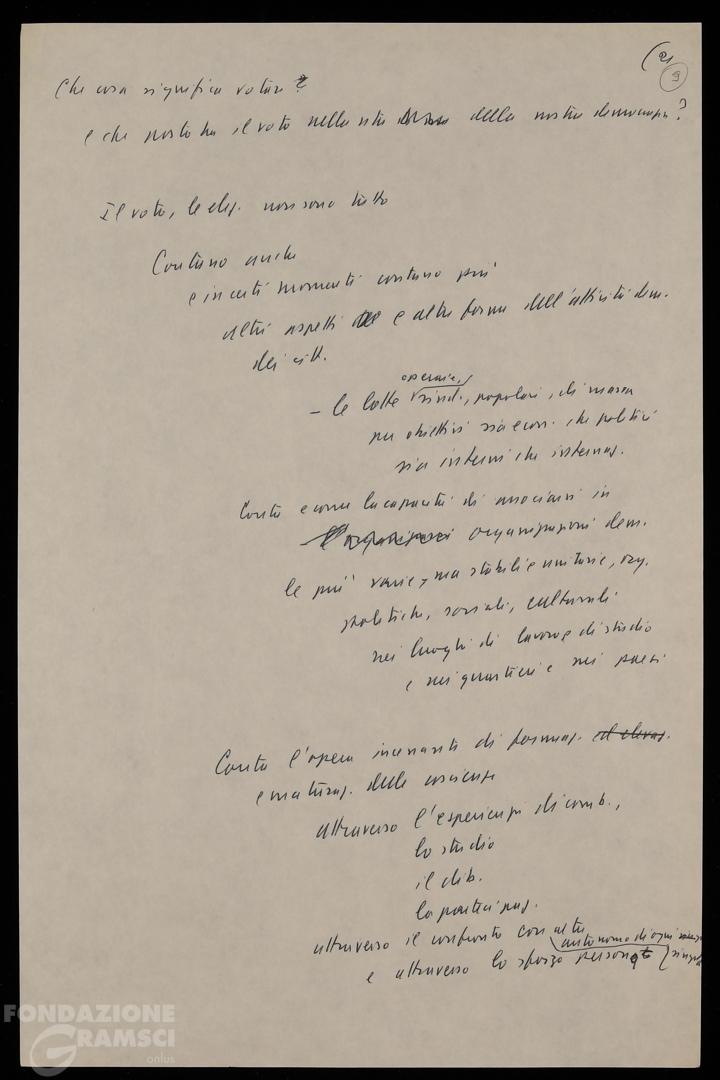 (2
9
Che cosa significa votare?
e che posto ha il voto nella vita della nostra democrazia?
Il voto, le elez. non sono tutto
Contano anche
e in certi momenti contano più
altri aspetti e altre forme dell'attività dem.
dei citt.
operaie,
– le lotte sind., popolari, di massa
per obiettivi sia econ. che politici
sia interni che internaz.
Conta e come la capacità di associarsi in
organizzazioni dem.
le più varie, ma stabili e unitarie, org.
politiche, sociali, culturali
nei luoghi di lavoro e di studio
e nei quartieri e nei paesi
Conta l'opera incessante di formaz. ed elevaz.
e maturaz. delle coscienze
attraverso l'esperienza di comb.,
lo studio
il dib.
la partecipaz.
attraverso il confronto con altri
autonomo di ogni
e attraverso lo sforzo personale
FONDAZIONE
GRAMSCI
onlus